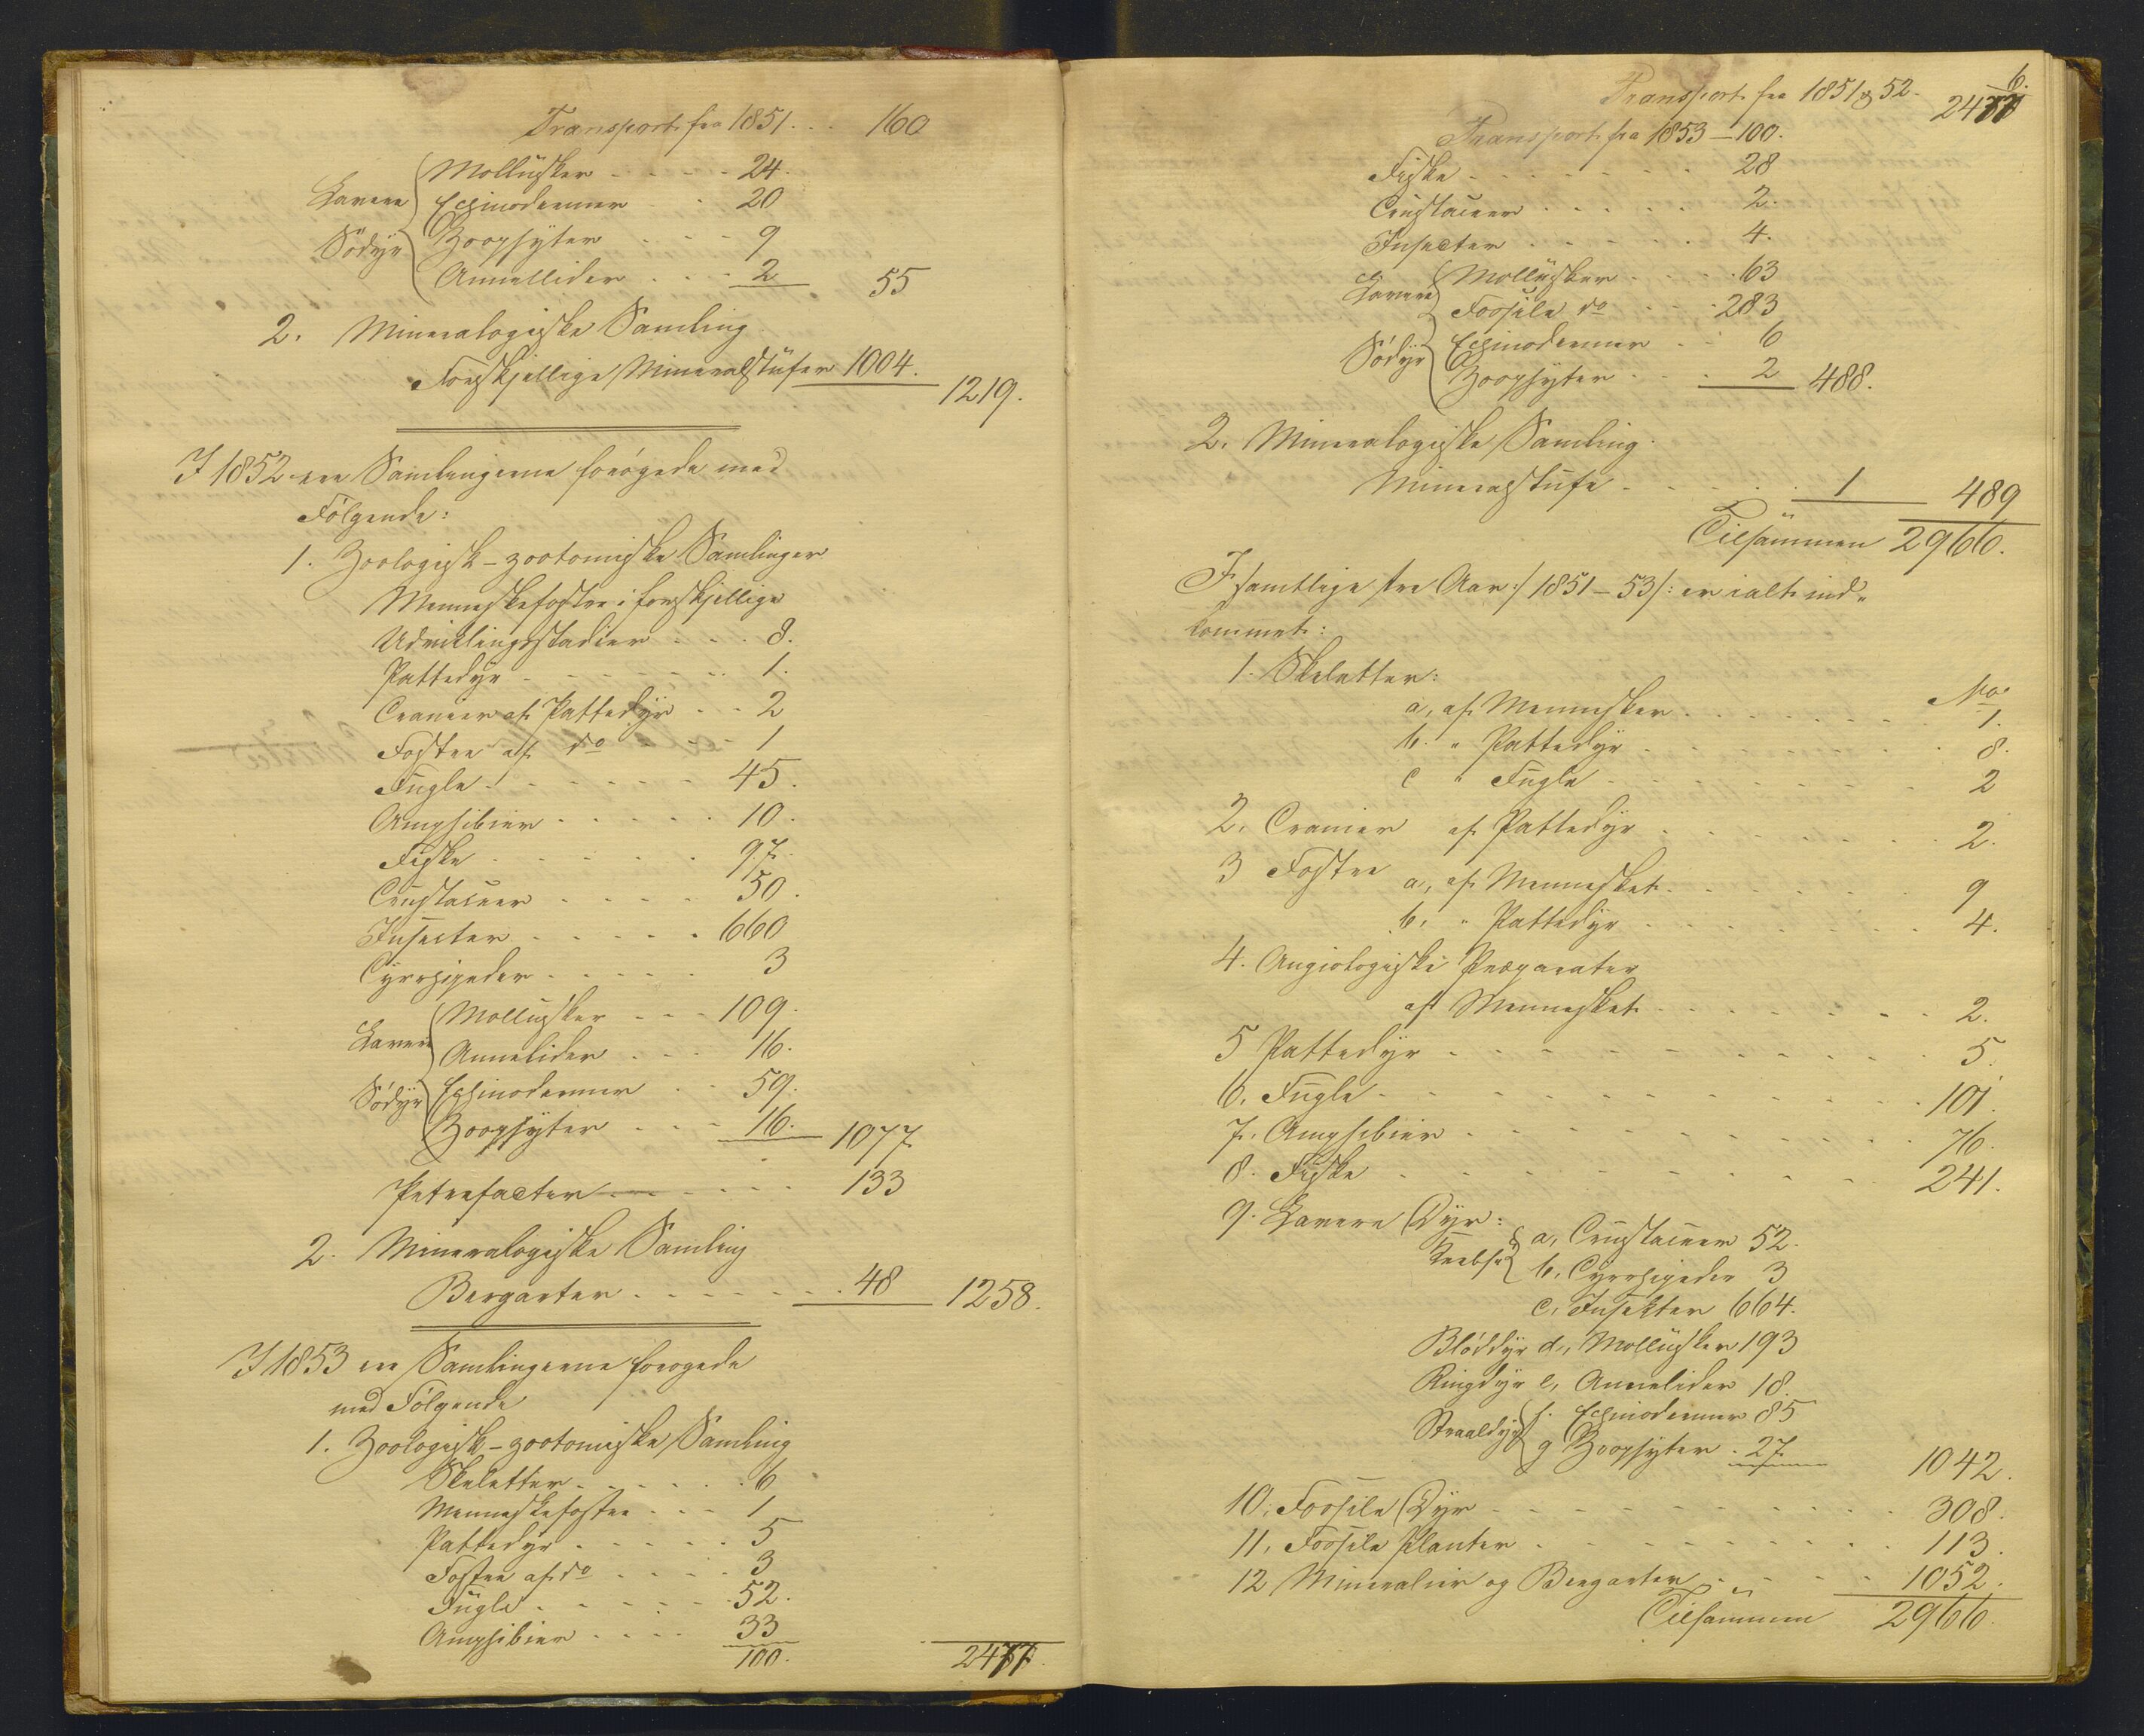 Transport fra 1851 . . . 160
Lavere Sødyr { Mollusker - - - - 24.
Echinodermer - - 20
Zoophyter - - - 9
Annellider - - - 2 55
2. Mineralogiske Samling
Forskjellige Mineralstufer 1004. 1219.
I 1852 ere Samlingerne forøgede med
Følgende:
1. Zoologisk-zootomiske Samlinger
Menneskefostre i forskjellige
Udviklingsstadier - - - 8.
Pattedyr - - - - - 1.
Cranier af Pattedyr - - 2
Fostre af do - - - 1
Fugle - - - - - 45.
Amphibier - - - - 10.
Fiske - - - - - 97.
Crustaceer - - - - 50.
Insecter - - - - - 660
Cyrrhipeder - - - - 3
Lavere Sødyr { Mollusker - - - 109.
Annelider - - - 16.
Echinodermer - - 59.
Zoophyter - - - 16. 1077
Petrefacter - - - - - 133
2. Mineralogiske Samling
Bergarter - - - - - - 48 1258.
I 1853 ere Samlingerne forøgede
med Følgende
1. Zoologisk-zootomiske Samling
Skeletter - - - - - 6
Menneskefostre - - - 1
Pattedyr - - - - - 5
Fostre af do - - - - 3
Fugle - - - - - 52.
Amphibier - - - - 33
100. 2477.
6.
Transport fra 1851 & 52. 2477
Transport fra 1853 – 100.
Fiske - - - - - - 28
Crustaceer - - - - - 2.
Insecter - - - - - 4.
Lavere Sødyr { Mollusker - - - 63
Fossile do - - - 283
Echinodermer - - 6
Zoophyter - - - 2 488.
2. Mineralogiske Samling
Mineralstufe - - - - - 1 489
Tilsammen 2966.
I samtlige tre Aar :/ 1851–53 /: er ialt ind-
kommet:
1. Skeletter: No.
a, af Mennesker - - - - - 1.
b. " Pattedyr - - - - - 8.
c " Fugle - - - - - 2
2. Cranier af Pattedyr - - - - - 2.
3 Fostre a, af Mennesket - - - - - 9
b, " Pattedyr - - - - - 4.
4. Angiologiske Præparater
af Mennesket - - - - - 2.
5 Pattedyr - - - - - 5.
6. Fugle - - - - - 101.
7. Amphibier - - - - - 76.
8. Fiske - - - - - 241.
9. Lavere Dyr:
Krebse { a, Crustaceer 52.
b, Cyrrhipeder 3
c, Insekter 664.
Bløddyr d, Mollusker 193
Ringdyr e, Annelider 18.
Straaldyr { f. Echinodermer 85
g Zoophyter - 27. 1042.
10. Fossile Dyr - - - - - 308.
11, Fossile Planter - - - - - 113.
12 Mineralier og Bergarter - - - - - 1052.
Tilsammen 2966.